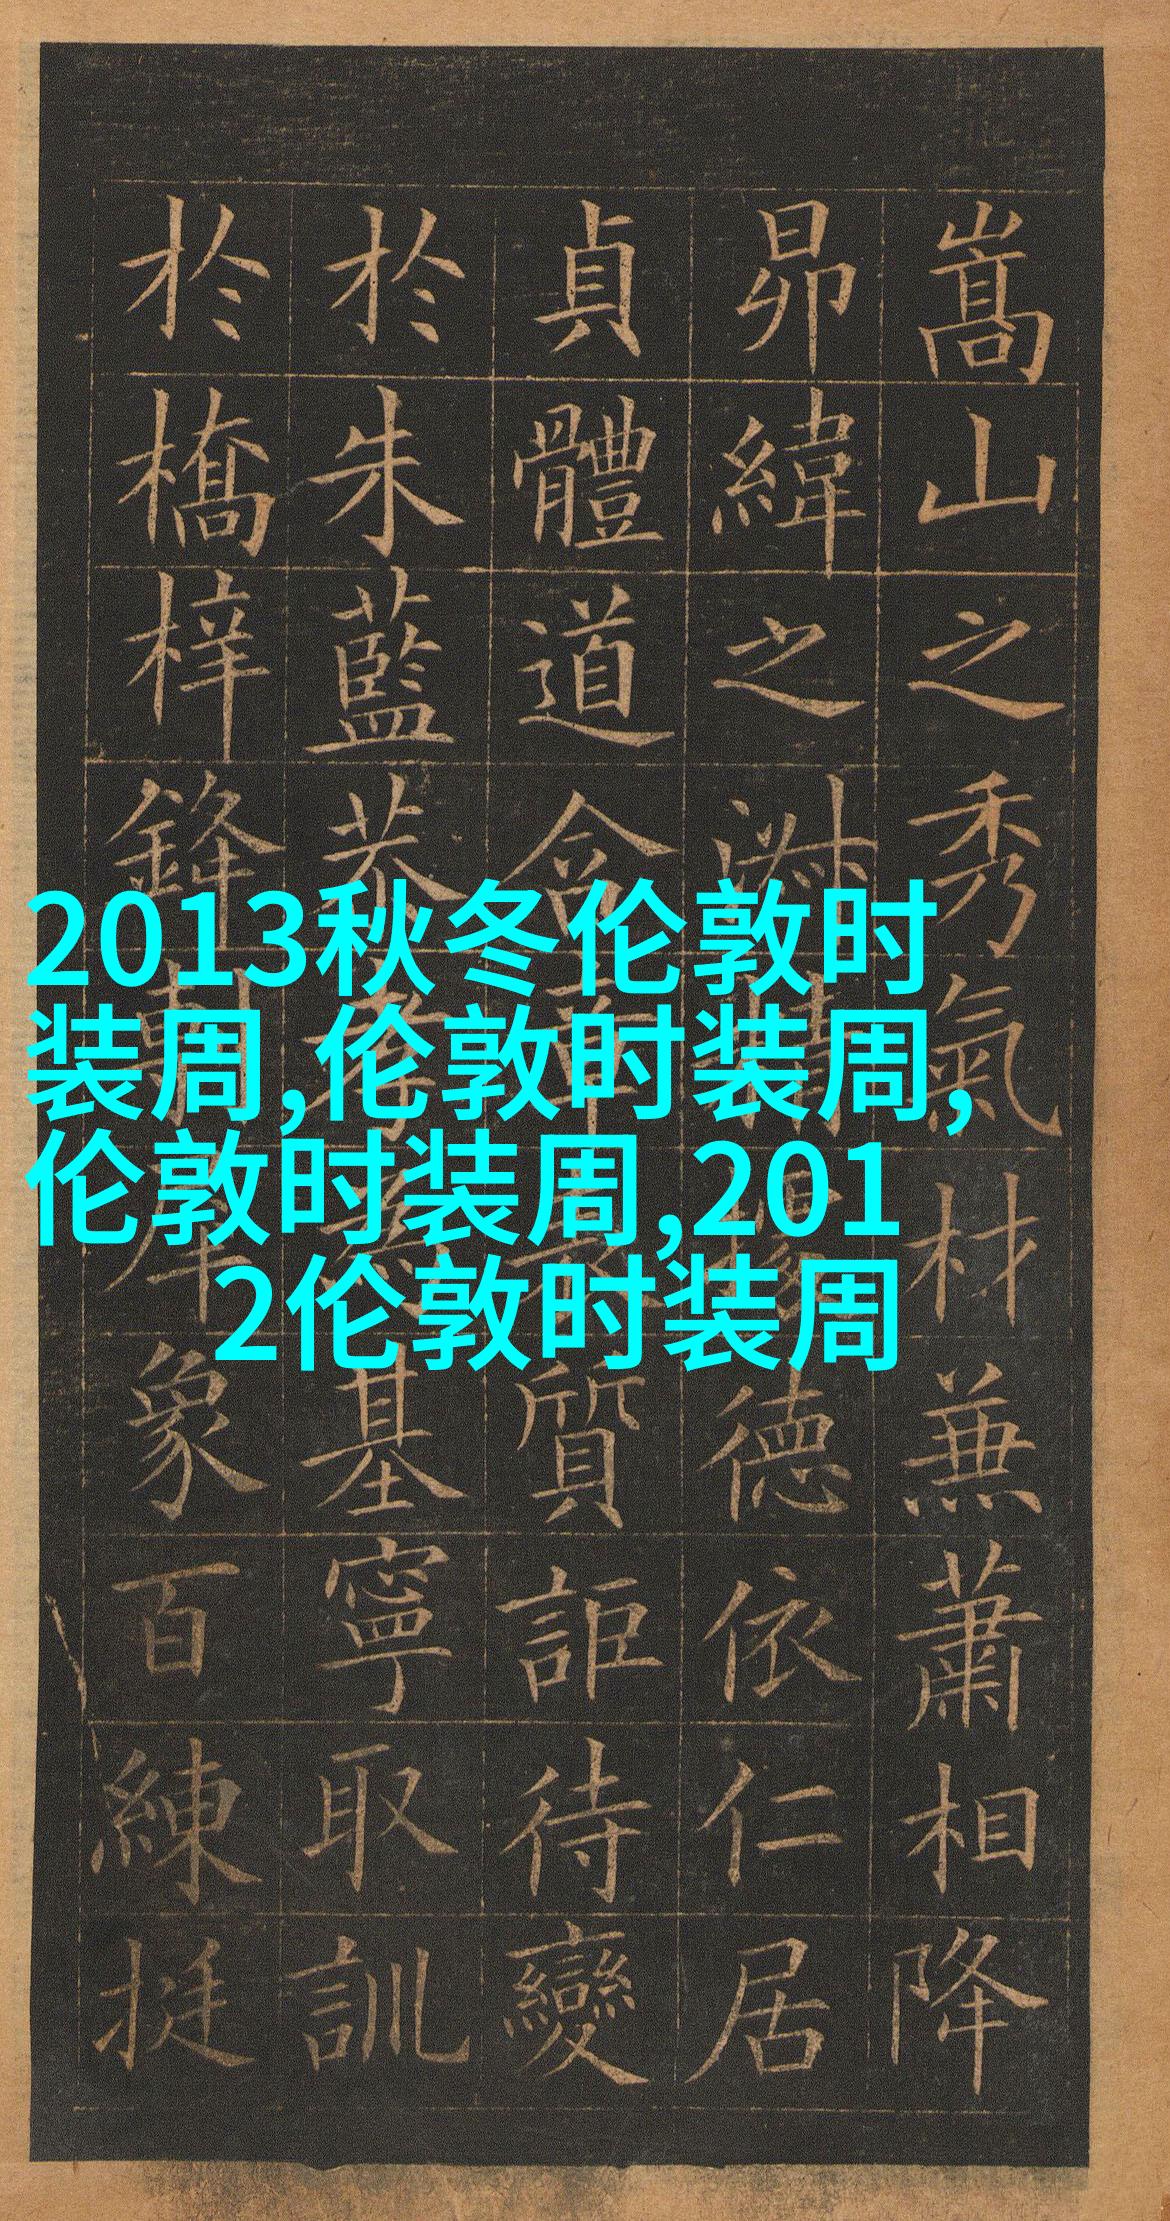 2013秋冬伦敦时
装周,伦敦时装周,
伦敦时装周,201
2伦敦时装周
嵩山之秀氣材兼蕭相降
昴緯之淑精據德依仁居
貞體道含章質詎待變
於朱藍恭孝為基寧取訓
於橋梓鋒犀象百練挺